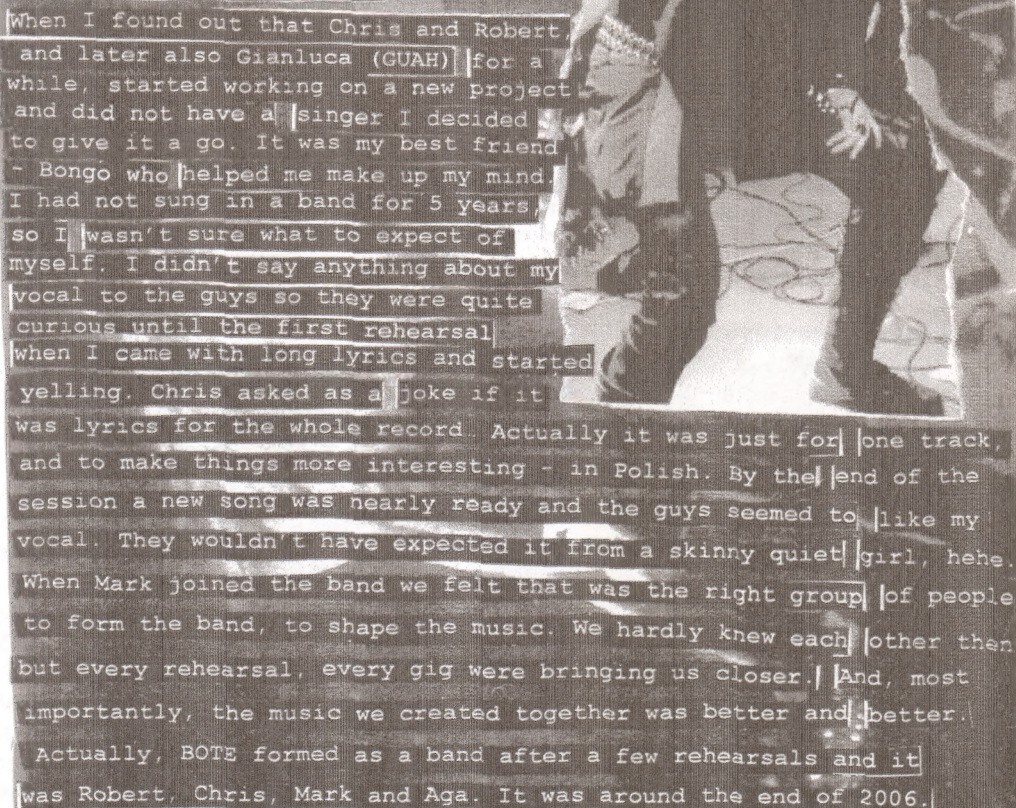 When I found out that Chris and Robert,
and later also Gianluca (GUAH) for a
while, started working on a new project
and did not have a singer I decided
to give it a go. It was my best friend
- Bongo who helped me make up my mind.
I had not sung in a band for 5 years,
so I wasn't sure what to expect of
myself. I didn't say anything about my
vocal to the guys so they were quite
curious until the first rehearsal
when I came with long lyrics and started
yelling. Chris asked as a joke if it
was lyrics for the whole record. Actually it was just for one track,
and to make things more interesting - in Polish. By the end of the
session a new song was nearly ready and the guys seemed to like my
vocal. They wouldn't have expected it from a skinny quiet girl, hehe.
When Mark joined the band we felt that was the right group of people
to form the band, to shape the music. We hardly knew each other then
but every rehearsal, every gig were bringing us closer. And, most
importantly, the music we created together was better and better.
Actually, BOTE formed as a band after a few rehearsals and it
was Robert, Chris, Mark and Aga. It was around the end of 2006.